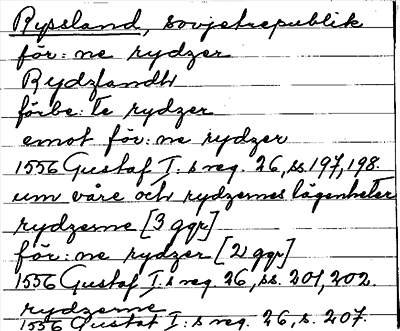 Ryssland, sovjetrepublik
för:ne rydzer
Rydzlandh
förbe:te rydzer
emot för:ne rydzer
1556 Gustaf I:s reg. 26, ss. 197, 198.
um våre och rydzernes lägenheter
rydzerne [3 ggr]
för:ne rydzer [2 ggr]
1556 Gustaf I:s reg. 26, ss. 201, 202.
rydzerne
1556 Gustaf I:s reg. 26, s. 207.